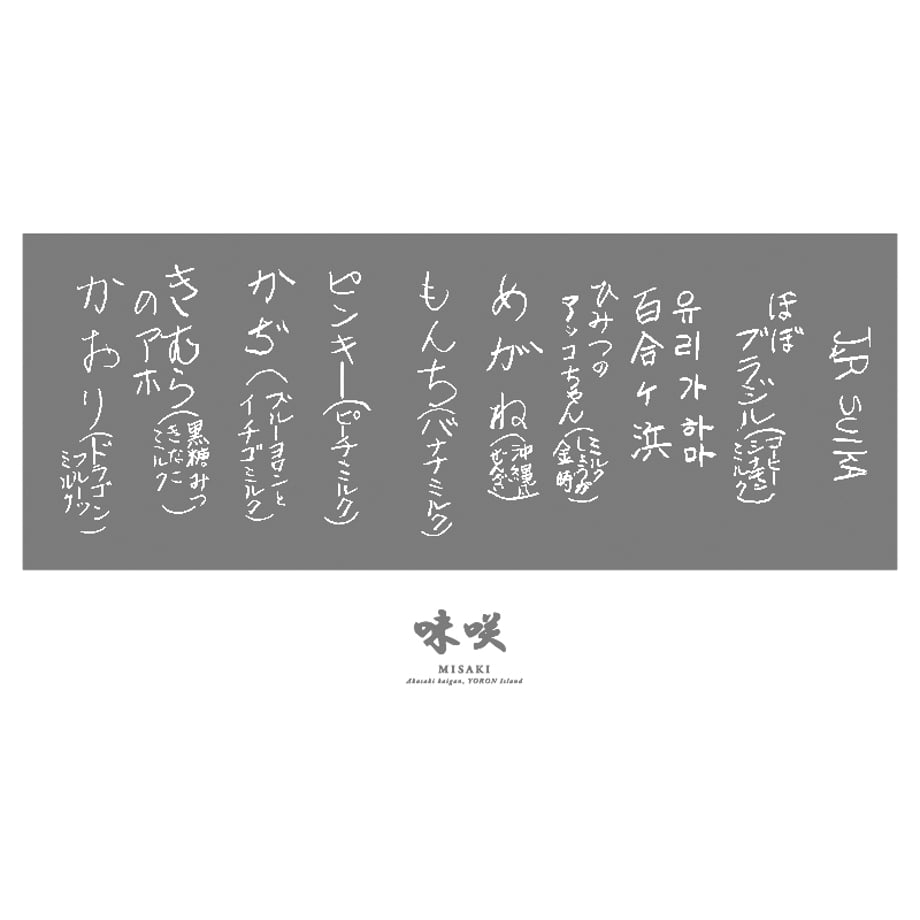 JR SUIKA
ほぼ
ブラジル(コーヒー
シナモン
ミルク)
유리가하마
百合ヶ浜
ひみつの
アッコちゃん(ミルク
しょうが
金時)
めがね(沖縄風
ぜんざい)
もんち(バナナミルク)
ピンキー(ピーチミルク)
かぢ(ブルーヨロンと
イチゴミルク)
きむら(黒糖みつ
きなこ
ミルク)
のアホ
かおり(ドラゴン
フルーツ
ミルク)
味咲
MISAKI
Akasaki kaigan, YORON Island